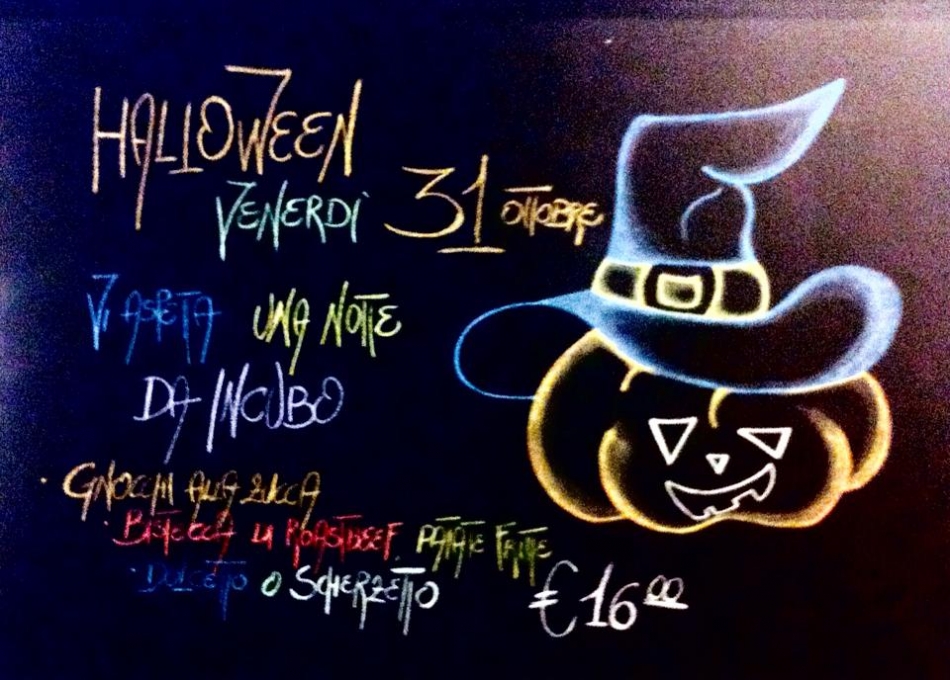 HALLOWEEN
VENERDÌ 31 OTTOBRE
VI ASPETTA UNA NOTTE
DA INCUBO
• GNOCCHI ALLA ZUCCA
• BISTECCA DI ROASTBEEF, PATATE FRITTE
• DOLCETTO O SCHERZETTO
€ 16,00